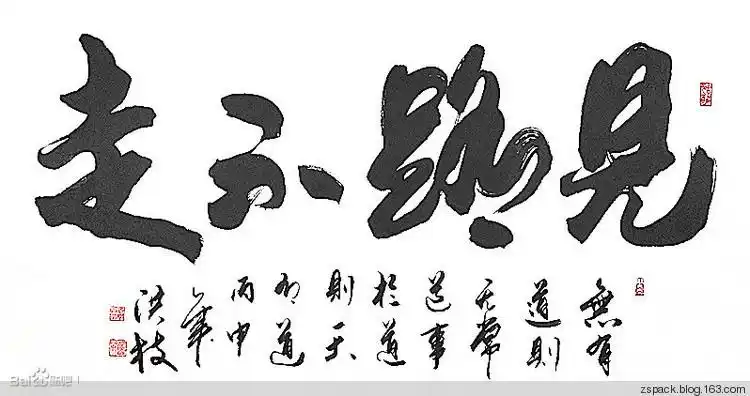 見路不走
無有
道則
无常
道事
於道
則天
道
丙申
年
洪枝
Bai 贴吧
zspack.blog.163.com